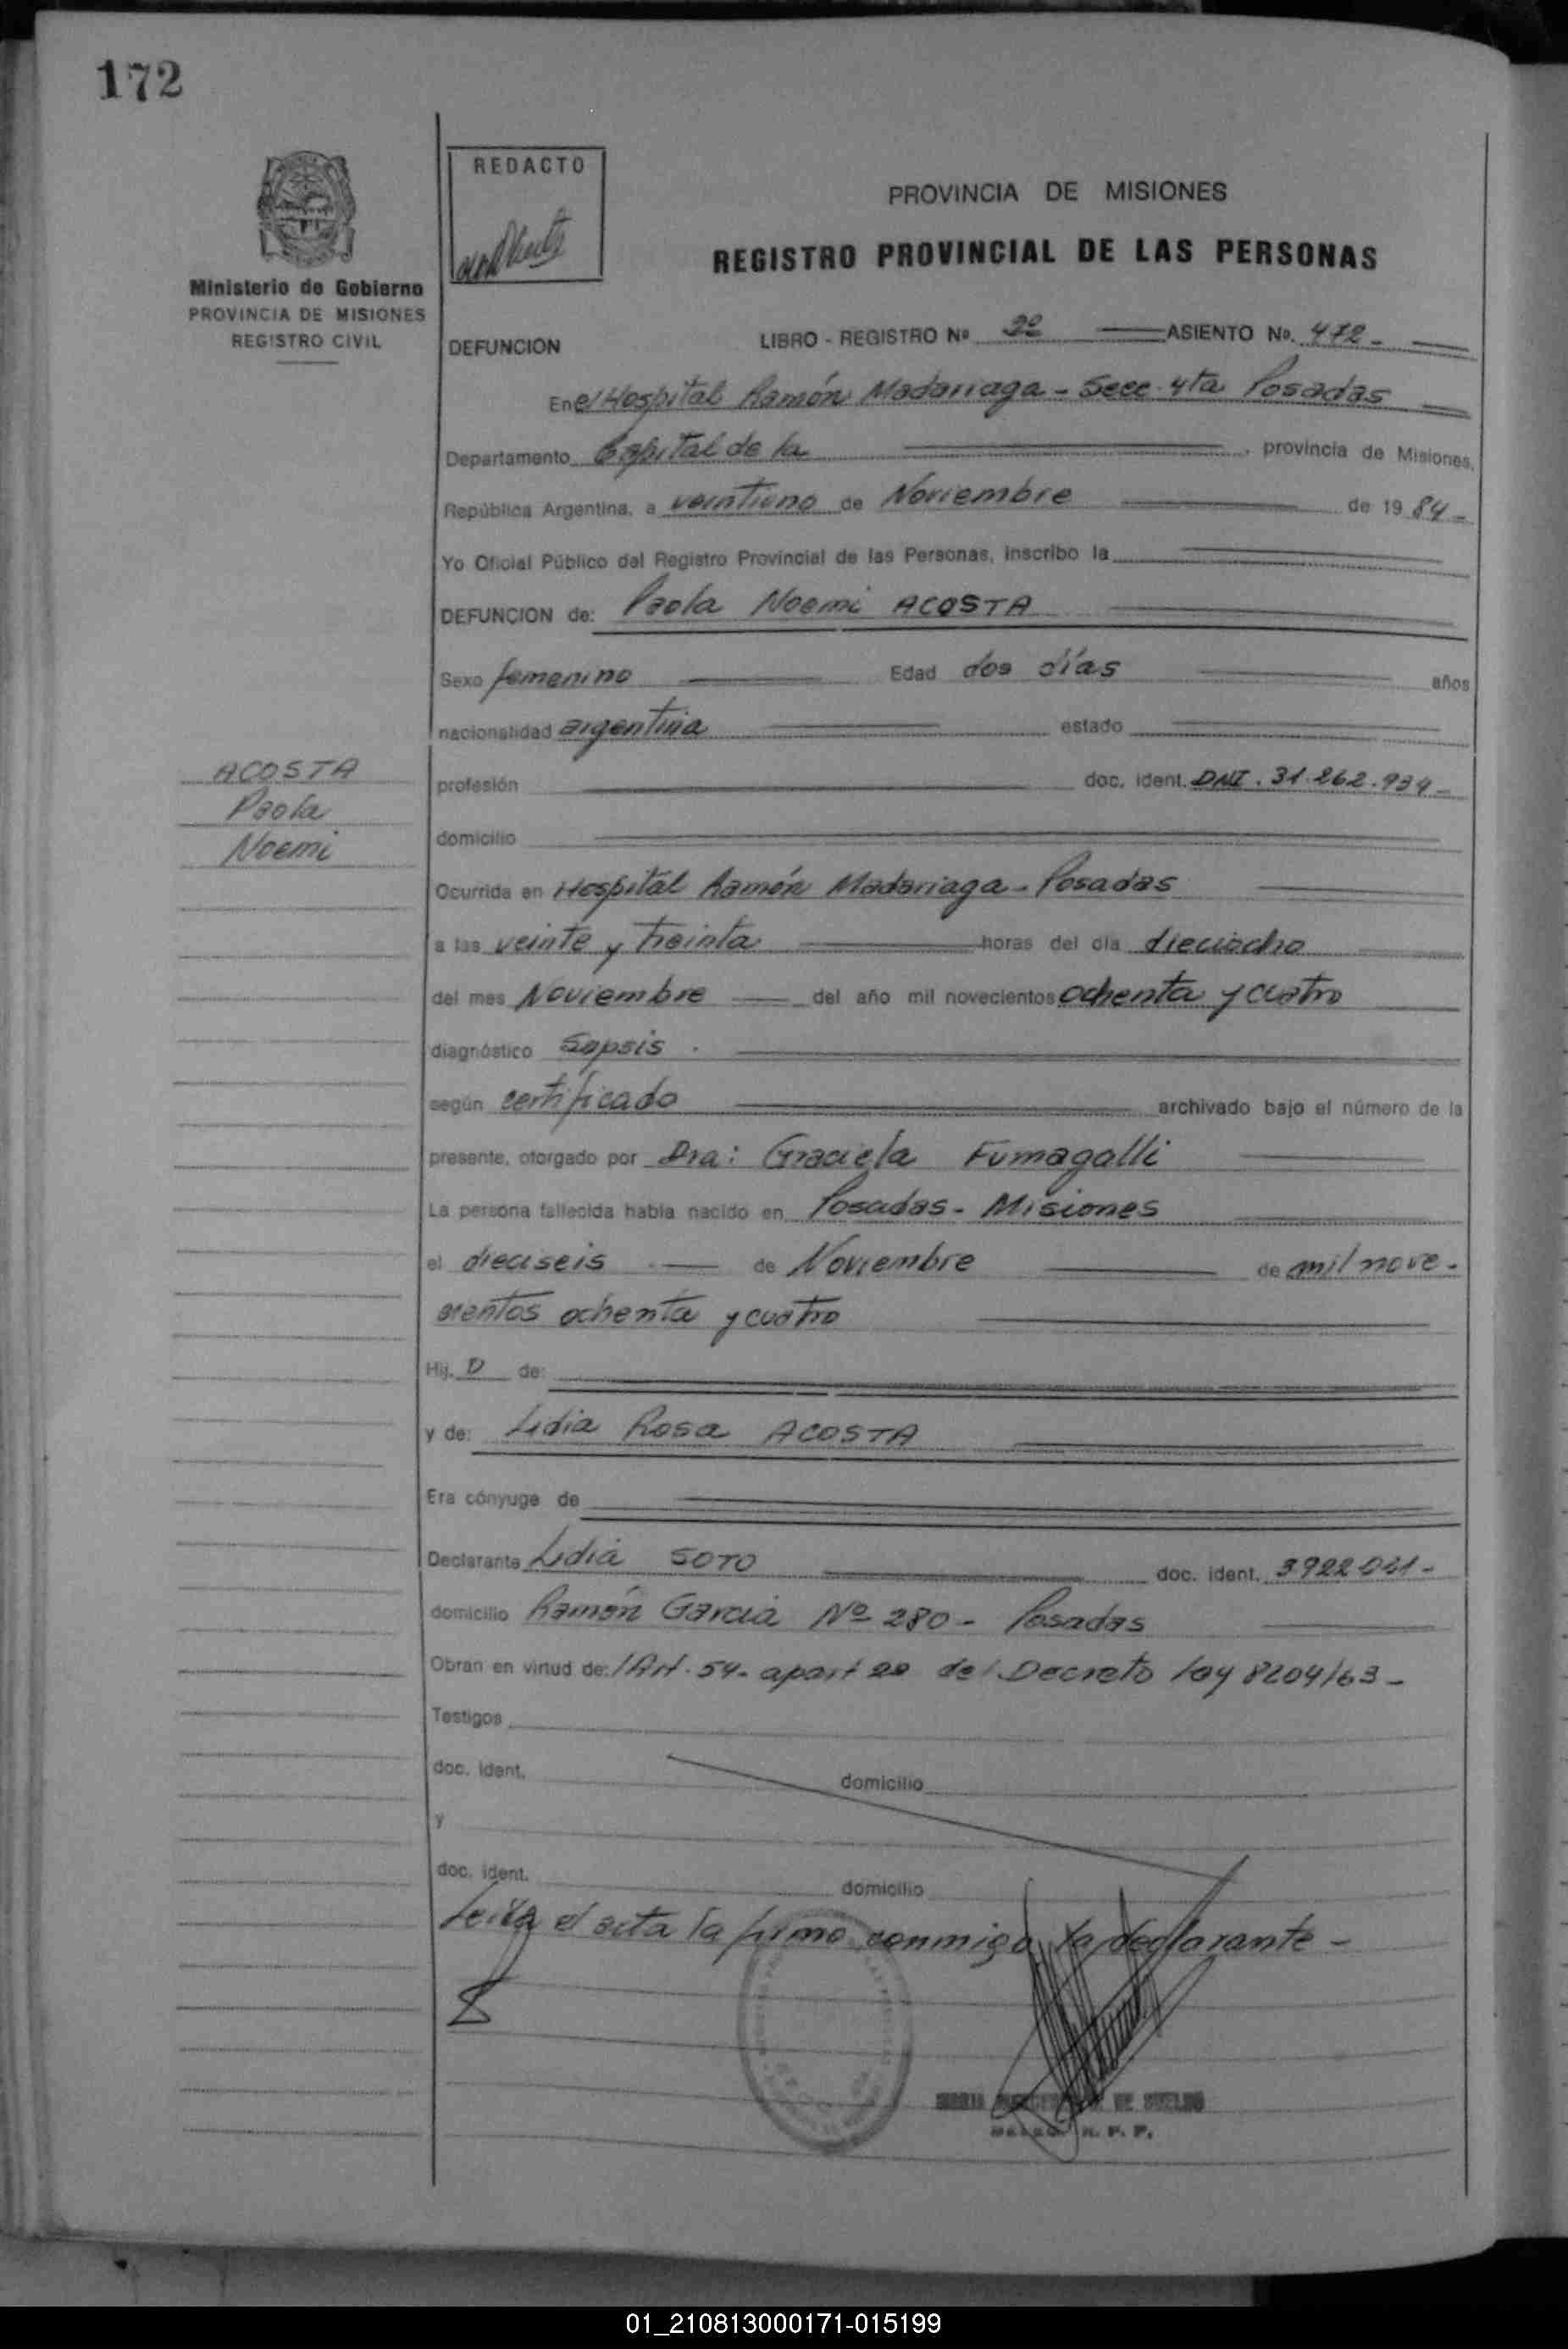 172
REDACTO
Ministerio de Gobierno
PROVINCIA DE MISIONES
REGISTRO CIVIL
PROVINCIA DE MISIONES
REGISTRO PROVINCIAL DE LAS PERSONAS
DEFUNCION LIBRO - REGISTRO Nº 2º ASIENTO No. 472-
En el Hospital Ramón Madariaga - Secc. 4ta Posadas
Departamento Capital de la , provincia de Misiones,
República Argentina, a veintiuno de Noviembre de 19 84-
Yo Oficial Público del Registro Provincial de las Personas, inscribo la
DEFUNCION de: Paola Noemi ACOSTA
Sexo femenino Edad dos días años
nacionalidad argentina estado
ACOSTA
Paola
Noemi
profesión doc. ident. DNI. 31.262.934-
domicilio
Ocurrida en Hospital Ramón Madariaga - Posadas
a las veinte y treinta horas del día dieciocho
del mes Noviembre del año mil novecientos ochenta y cuatro
diagnóstico Sepsis.
según certificado archivado bajo el número de la
presente, otorgado por Dra: Graciela Fumagalli
La persona fallecida había nacido en Posadas - Misiones
el dieciseis de Noviembre de mil nove-
cientos ochenta y cuatro
Hij. a de:
y de: Lidia Rosa ACOSTA
Era cónyuge de
Declarante Lidia SOTO doc. ident. 3922041-
domicilio Ramón Garcia Nº 280 - Posadas
Obran en virtud de: l Art. 54. apart 2º del Decreto ley 8204/63-
Testigos
doc. ident. domicilio
y
doc. ident. domicilio
Leída el acta la firma conmigo la declarante-
DE SUELDO
R. P. P.
01_210813000171-015199